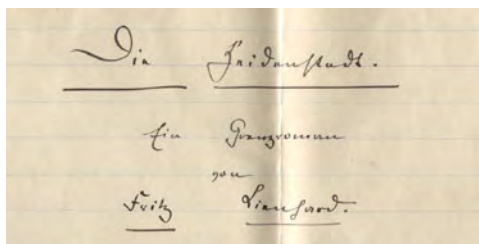 Die Heidenstadt.
Ein Grenzroman
von
Fritz Lienhard.